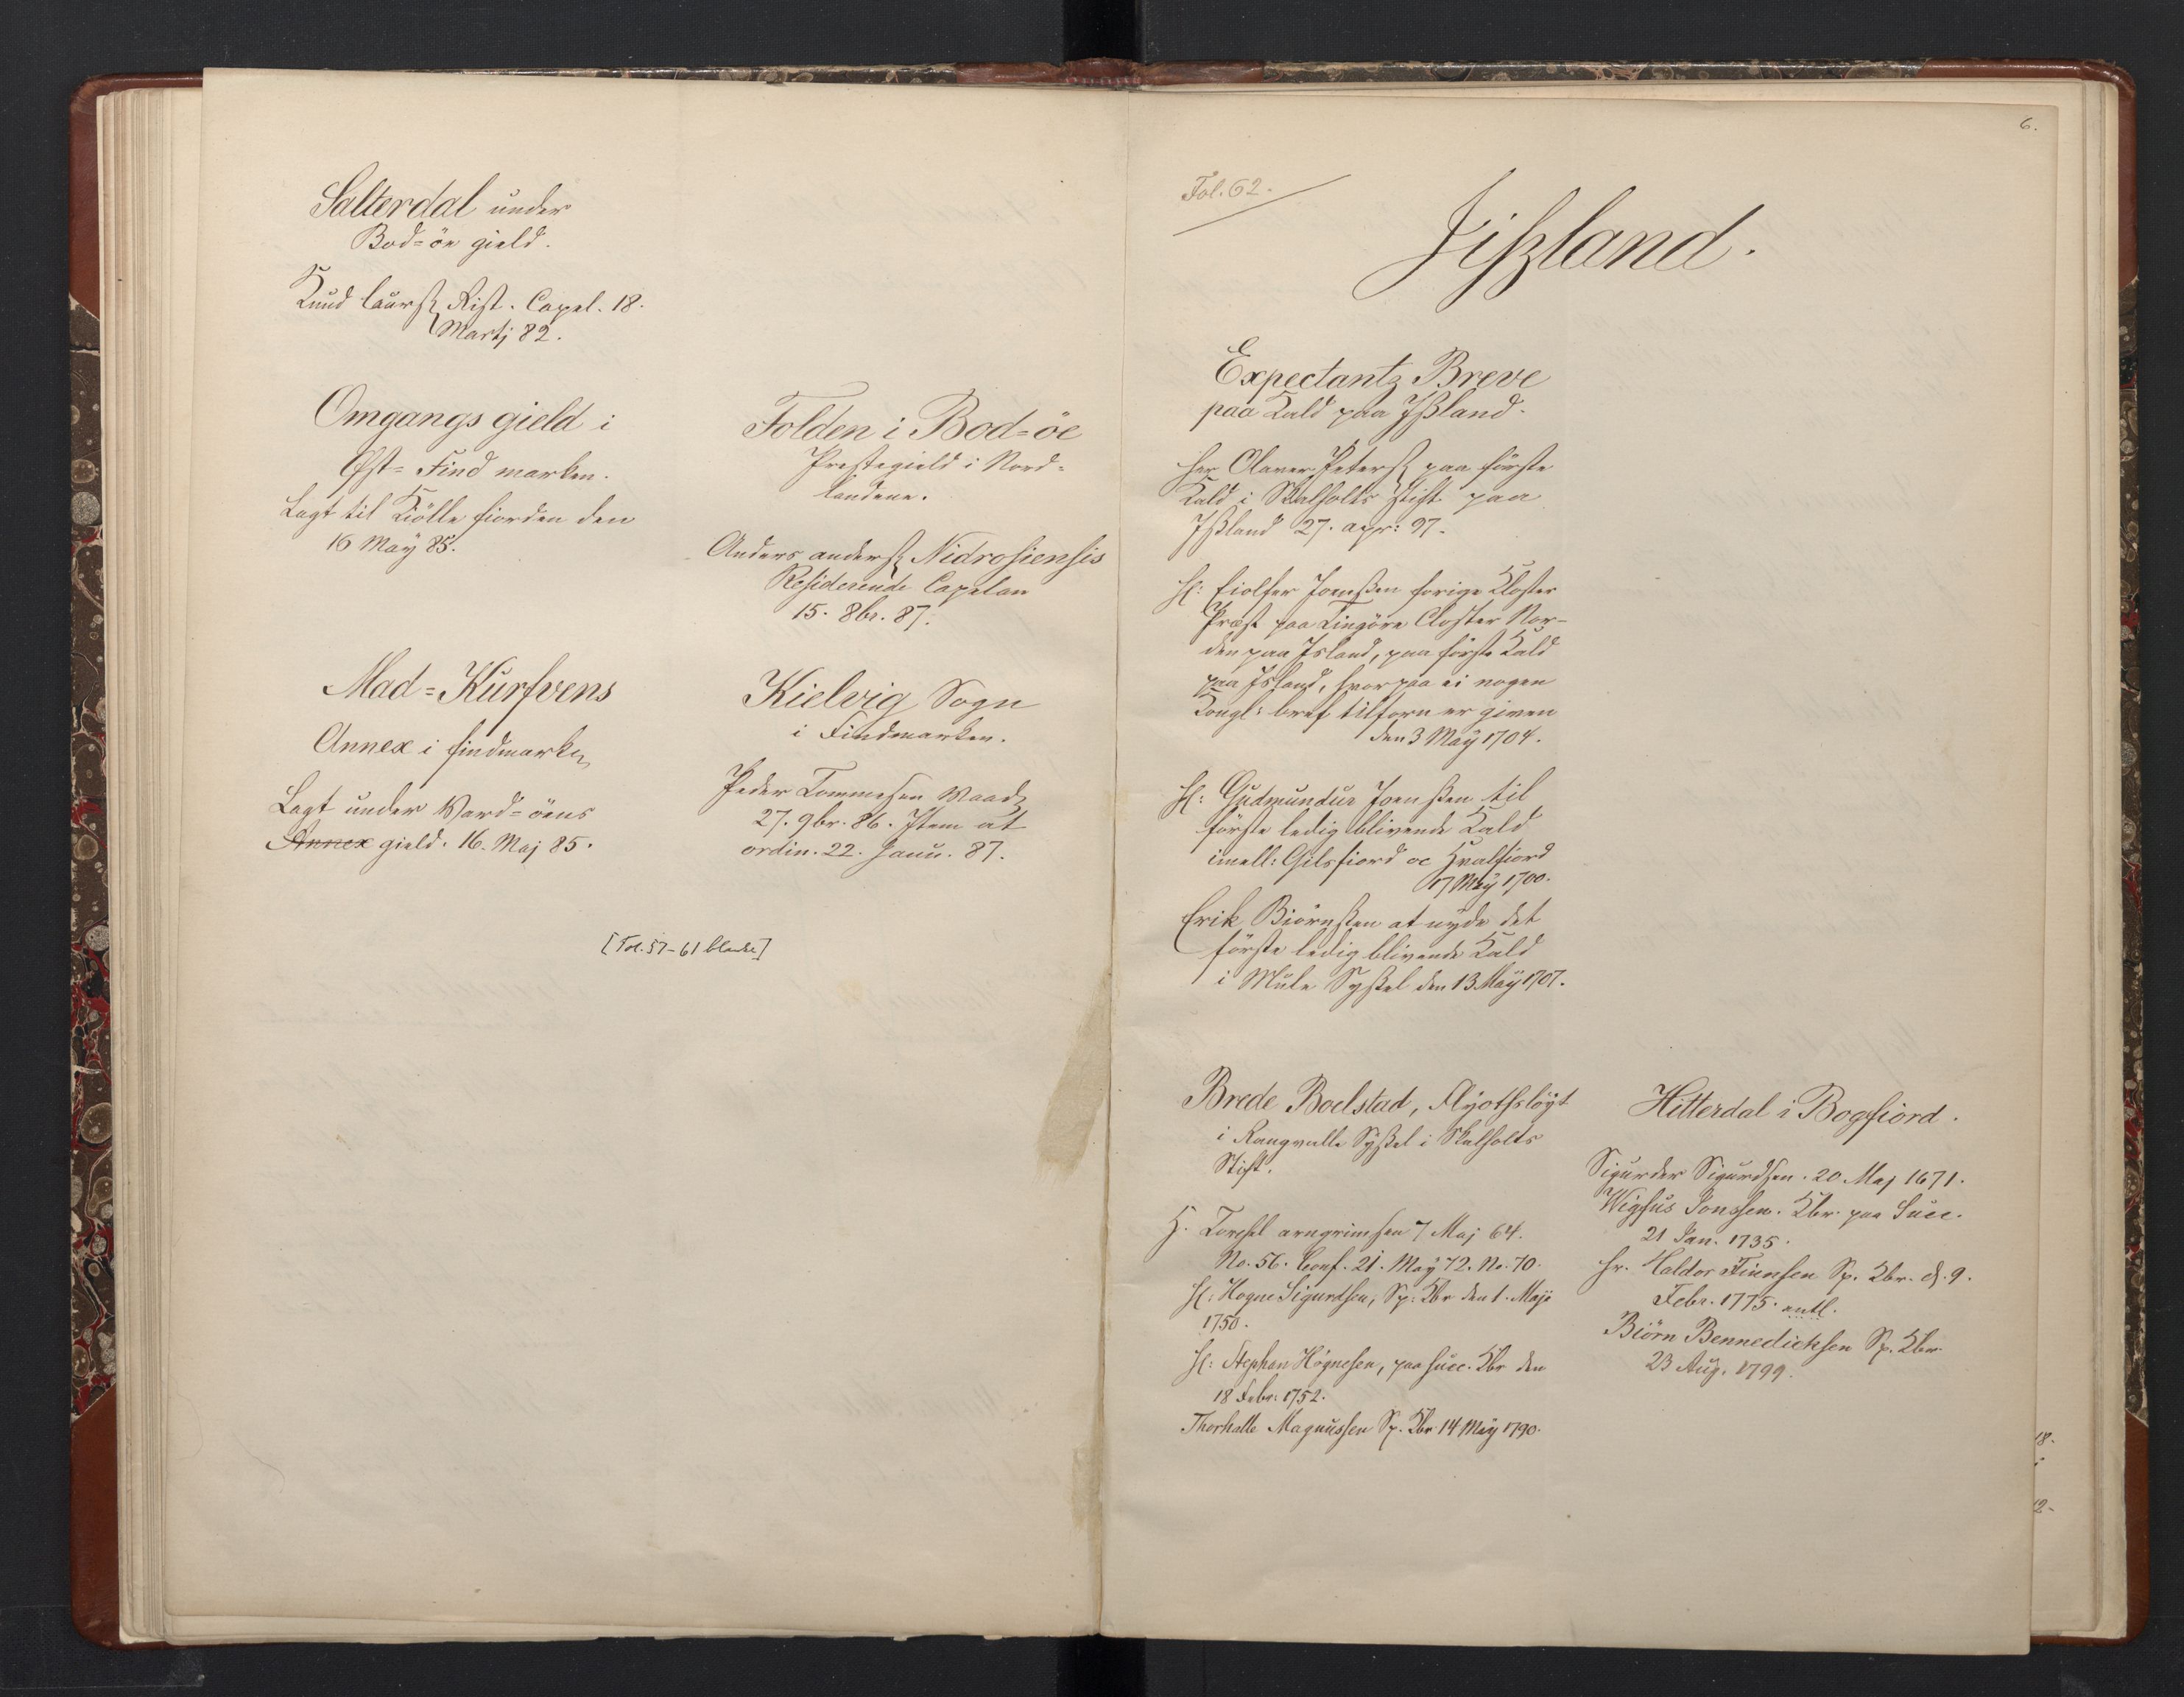 Salterdal under
Bod=öe gield.
Knud Laursz Rist. Capel. 18.
Martj 82.
Omgangs gield i
Øst=Find marken.
Lagt til Kiölle fiorden den
16 Maÿ 85.
Mad=Kurfvens
Annex i findmarken
Lagt under Ward=öens
Annex gield. 16. Maj 85.
Folden i Bod=öe
Prestegield i Nord=
landene.
Anders andersz Nidrosiensis
Residerende Capelan
15. 8br. 87.
Kielvig Sogn
i Findmarken.
Peder Tommesen Waad
27. 9br. 86. Item at
ordin. 22. Janu. 87.
[Fol. 57-61 blanke]
6.
Fol. 62.
Jißland.
Expectantz Breve
paa Kald paa Jßland.
Her Olaver Petersz paa förste
Kald i Skalholts Stift paa
Jßland 27. apr: 97.
Hr: Eiolfer Jonßen forige Closter
Præst paa Tingöre Closter Nor-
den paa Jsland, paa förste Kald
paa Jsland, hvorpaa ei nogen
Kongl: bref tilforn er given
den 3 Maÿ 1704.
Hr: Gudmundur Joenßen til
förste ledig blivende Kald
imell: Gilsfiord oc Hvalfiord
17 Maÿ 1700.
Erik Biörnßen at nyde det
förste ledig blivende Kald
i Mule Syßel den 13 Maÿ 1707.
Brede Boelstad, Flÿotßlöÿt
i Rangvalle Syßel i Skalholts
Stift.
H. Torfsel arngrimsen 7 Maj 64.
No. 56. Conf. 21. Maÿ 72. No. 70.
Hr: Hogne Sigurdsen, Sp: Kbr den 1. Maje
1750.
Hr: Stephan Högnesen, paa Succ. Kbr den
18 Febr: 1752.
Thorhalle Magnussen Sp. Kbr 14 Maÿ 1790.
Hitterdal i Bogfiord.
Sigurder Sigurdsen. 20. Maj 1671.
Wigfus Jonssen. Kbr. paa Succ.
21 Jan. 1735.
Hr. Haldor Finnsen Sp. Kbr. d. 9.
Febr. 1775. entl.
Biörn Bennedichsen Sp. Kbr.
23 Aug. 1799.
18.
12-